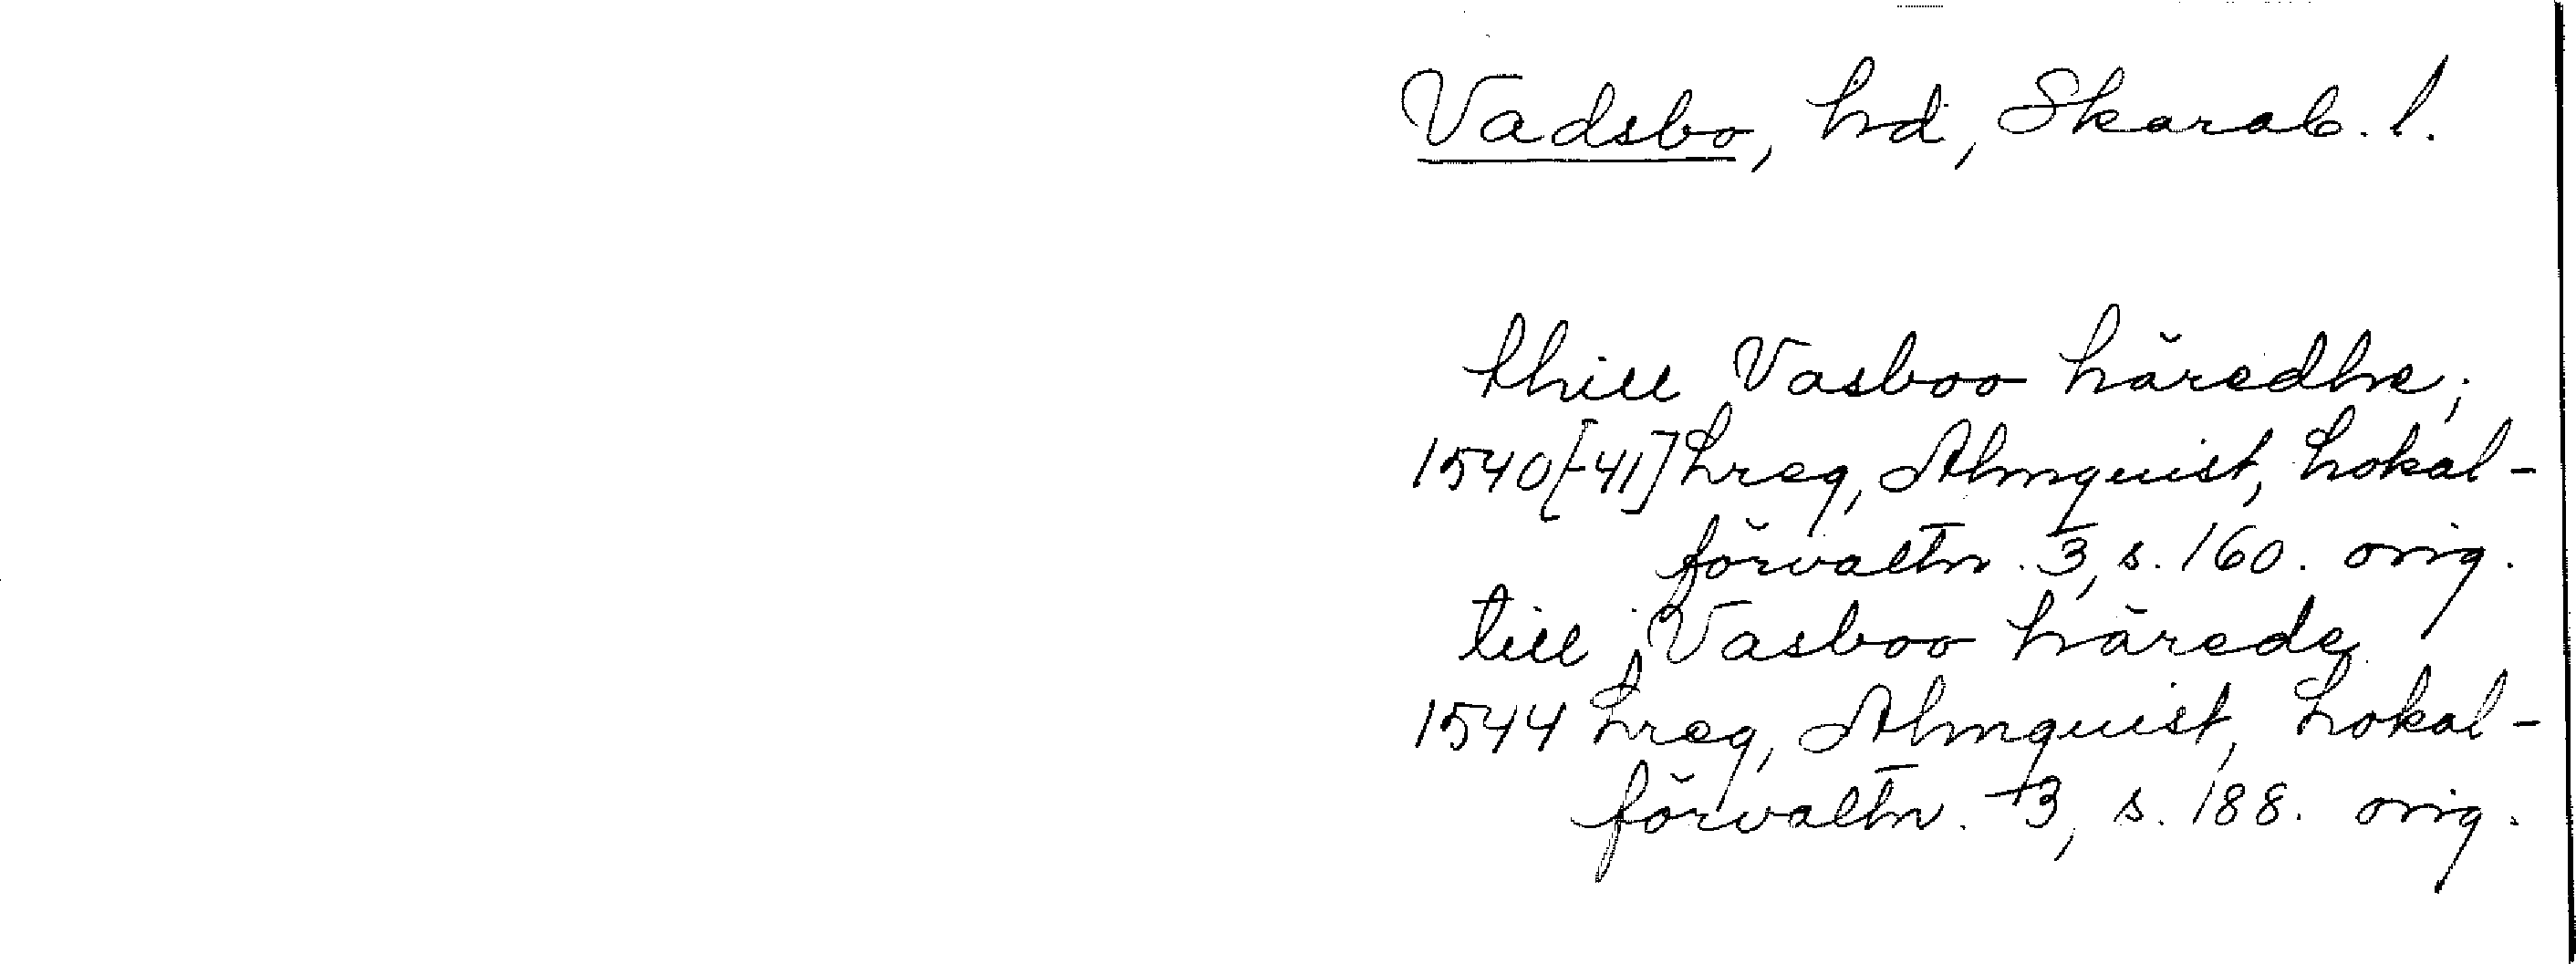 Vadsbo, hd, Skarab. l.
thill Vasboo häredhe;
1540[-41] Lreg, Almquist, Lokal-
förvaltn. 3, s. 160. orig.
till Vasboo härede
1544 Lreg, Almquist, Lokal-
förvaltn. 3, s. 188. orig.